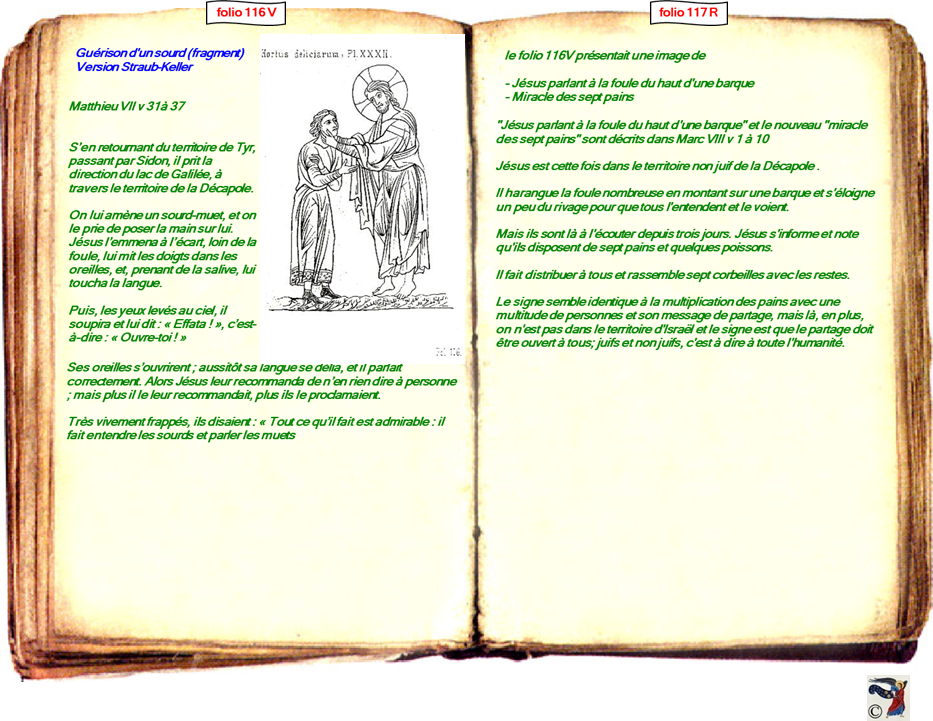 folio 116 V
Guérison d'un sourd (fragment)
Version Straub-Keller
Hortus deliciarum. Pl. XXXII.
Matthieu VII v 31à 37
S'en retournant du territoire de Tyr,
passant par Sidon, il prit la
direction du lac de Galilée, à
travers le territoire de la Décapole.
On lui amène un sourd-muet, et on
le prie de poser la main sur lui.
Jésus l'emmena à l'écart, loin de la
foule, lui mit les doigts dans les
oreilles, et, prenant de la salive, lui
toucha la langue.
Puis, les yeux levés au ciel, il
soupira et lui dit : « Effata ! », c'est-
à-dire : « Ouvre-toi ! »
Fol. 116.
Ses oreilles s'ouvrirent ; aussitôt sa langue se délia, et il parlait
correctement. Alors Jésus leur recommanda de n'en rien dire à personne
; mais plus il le leur recommandait, plus ils le proclamaient.
Très vivement frappés, ils disaient : « Tout ce qu'il fait est admirable : il
fait entendre les sourds et parler les muets
folio 117 R
le folio 116V présentait une image de
- Jésus parlant à la foule du haut d'une barque
- Miracle des sept pains
"Jésus parlant à la foule du haut d'une barque" et le nouveau "miracle
des sept pains" sont décrits dans Marc VIII v 1 à 10
Jésus est cette fois dans le territoire non juif de la Décapole .
Il harangue la foule nombreuse en montant sur une barque et s'éloigne
un peu du rivage pour que tous l'entendent et le voient.
Mais ils sont là à l'écouter depuis trois jours. Jésus s'informe et note
qu'ils disposent de sept pains et quelques poissons.
Il fait distribuer à tous et rassemble sept corbeilles avec les restes.
Le signe semble identique à la multiplication des pains avec une
multitude de personnes et son message de partage, mais là, en plus,
on n'est pas dans le territoire d'Israël et le signe est que le partage doit
être ouvert à tous; juifs et non juifs, c'est à dire à toute l'humanité.
©